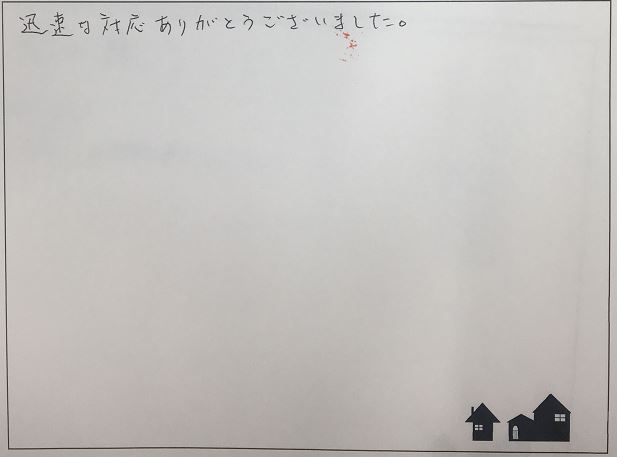 迅速な対応ありがとうございました。